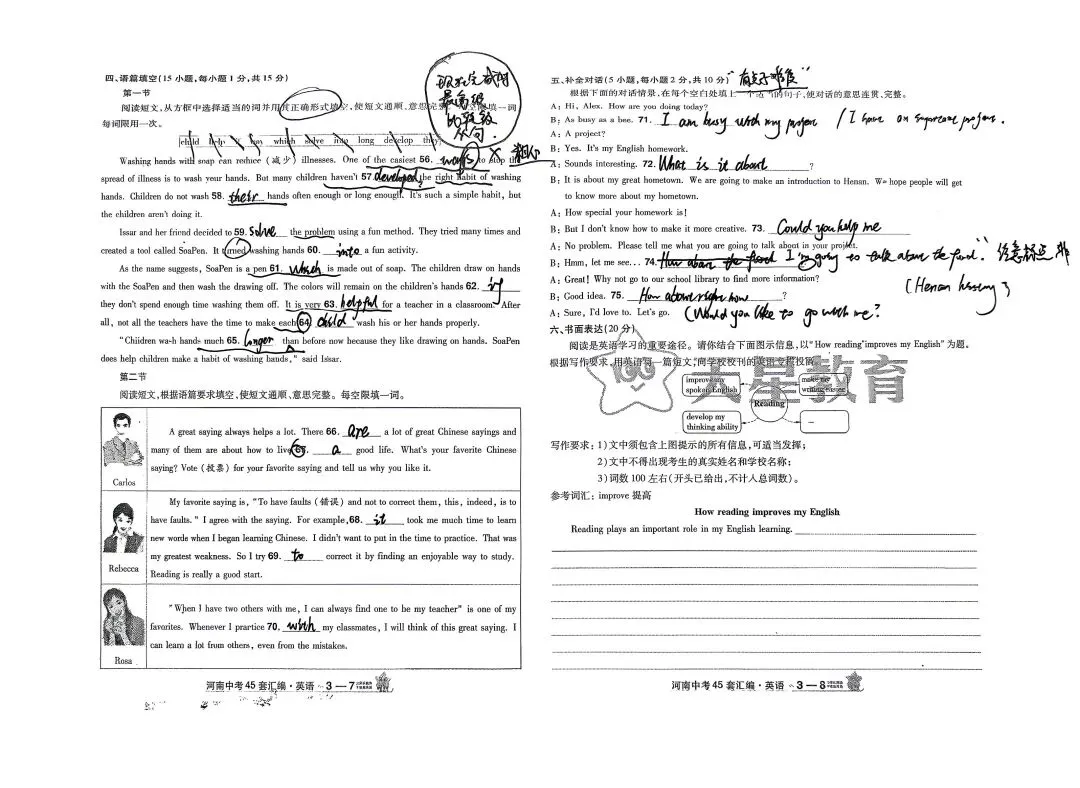 四、语篇填空(15 小题,每小题 1 分,共 15 分)
第一节
阅读短文,从方框中选择适当的词并用其正确形式填空,使短文通顺、意思完整。每空限填一词
每词限用一次。
现在完成时
最高级
比较级
从句
child help it way which solve into long develop they
Washing hands with soap can reduce (减少) illnesses. One of the easiest 56. ways to stop the
spread of illness is to wash your hands. But many children haven't 57. developed the right habit of washing
hands. Children do not wash 58. their hands often enough or long enough. It's such a simple habit, but
the children aren't doing it.
Issar and her friend decided to 59. solve the problem using a fun method. They tried many times and
created a tool called SoaPen. It turned washing hands 60. into a fun activity.
As the name suggests, SoaPen is a pen 61. which is made out of soap. The children draw on hands
with the SoaPen and then wash the drawing off. The colors will remain on the children's hands 62. if
they don't spend enough time washing them off. It is very 63. helpful for a teacher in a classroom. After
all, not all the teachers have the time to make each 64. child wash his or her hands properly.
"Children wash hands much 65. longer than before now because they like drawing on hands. SoaPen
does help children make a habit of washing hands," said Issar.
第二节
阅读短文,根据语篇要求填空,使短文通顺、意思完整。每空限填一词。
A great saying always helps a lot. There 66. are a lot of great Chinese sayings and
many of them are about how to live 67. a good life. What's your favorite Chinese
saying? Vote (投票) for your favorite saying and tell us why you like it.
Carlos
My favorite saying is, "To have faults (错误) and not to correct them, this, indeed, is to
have faults." I agree with the saying. For example, 68. it took me much time to learn
new words when I began learning Chinese. I didn't want to put in the time to practice. That was
my greatest weakness. So I try 69. to correct it by finding an enjoyable way to study.
Reading is really a good start.
Rebecca
"When I have two others with me, I can always find one to be my teacher" is one of my
favorites. Whenever I practice 70. with my classmates, I will think of this great saying. I
can learn a lot from others, even from the mistakes.
Rosa
河南中考 45 套汇编·英语 3—7
五、补全对话(5 小题,每小题 2 分,共 10 分) "有点小难度"
根据下面的对话情景,在每个空白处填上一个适当的句子,使对话的意思连贯、完整。
A: Hi, Alex. How are you doing today?
B: As busy as a bee. 71. I am busy with my project / I have an important project.
A: A project?
B: Yes. It's my English homework.
A: Sounds interesting. 72. What is it about ?
B: It is about my great hometown. We are going to make an introduction to Henan. We hope people will get
to know more about my hometown.
A: How special your homework is!
B: But I don't know how to make it more creative. 73. Could you help me
A: No problem. Please tell me what you are going to talk about in your project.
B: Hmm, let me see... 74. How about the food I'm going to talk about the food.
A: Great! Why not go to our school library to find more information?
B: Good idea. 75. How about right now ?
A: Sure, I'd love to. Let's go. (Would you like to go with me?
六、书面表达(20 分)
阅读是英语学习的重要途径。请你结合下面图示信息,以"How reading improves my English"为题。
根据写作要求,用英语写一篇短文,向学校校刊的英语专栏投稿。
天星教育
improve my
spoken English
make my
writing easier
Reading
develop my
thinking ability
...
写作要求:1)文中须包含上图提示的所有信息,可适当发挥;
2)文中不得出现考生的真实姓名和学校名称;
3)词数 100 左右(开头已给出,不计入总词数)。
参考词汇:improve 提高
How reading improves my English
Reading plays an important role in my English learning.
河南中考 45 套汇编·英语 3—8